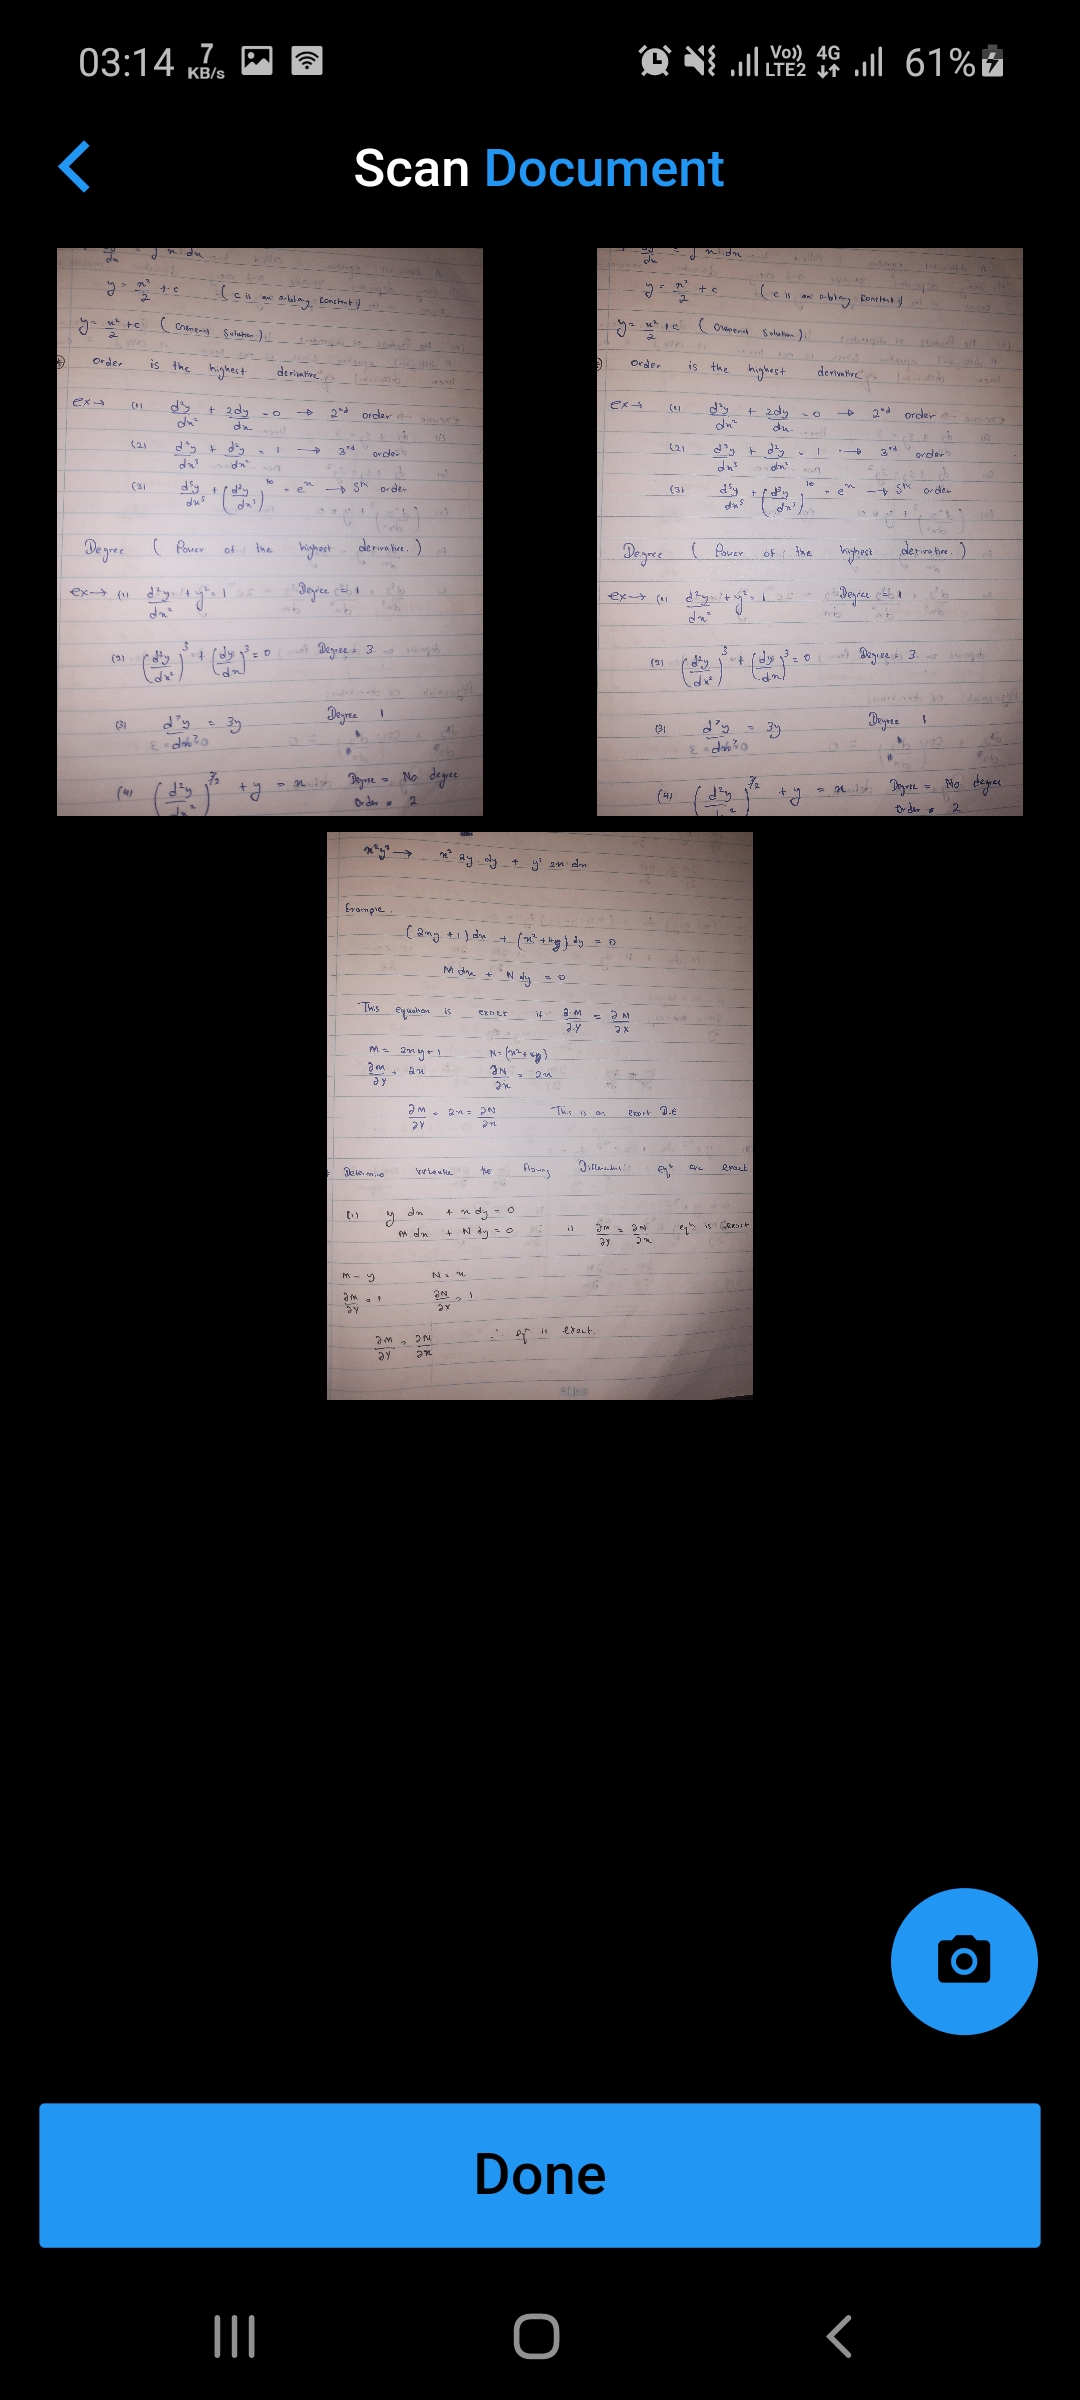 03:14 7 KB/s Vo)) LTE2 4G 61%
Scan Document
y = x²/2 + c ( c is an arbitary constant )
y = x²/2 + c ( General Solution )
Order is the highest derivative
ex → (1) d²y/dx² + 2dy/dx = 0 → 2nd order
(2) d³y/dx³ + d²y/dx² = 1 → 3rd order
(3) d⁵y/dx⁵ + (d³y/dx³)¹⁰ = eˣ → 5th order
Degree ( Power of the highest derivative. )
ex → (1) d²y/dx² + y² = 1 Degree = 1
(2) (d²y/dx²)³ + (dy/dx)³ = 0 Degree = 3
(3) d⁷y/dx⁷ = 3y Degree 1
(4) (d²y/dx²) + y = x Degree = No degree
Order = 2
y = x²/2 + c ( c is an arbitary constant )
y = x²/2 + c ( General Solution )
Order is the highest derivative
ex → (1) d²y/dx² + 2dy/dx = 0 → 2nd order
(2) d³y/dx³ + d²y/dx² = 1 → 3rd order
(3) d⁵y/dx⁵ + (d³y/dx³)¹⁰ = eˣ → 5th order
Degree ( Power of the highest derivative. )
ex → (1) d²y/dx² + y² = 1 Degree = 1
(2) (d²y/dx²)³ + (dy/dx)³ = 0 Degree = 3
(3) d⁷y/dx⁷ = 3y Degree 1
(4) (d²y/dx²) + y = x Degree = No degree
Order = 2
x²y² → x² 2y . dy + y² 2x dx
Example.
(2xy + 1) dx + (x² + 4y) dy = 0
M dx + N dy = 0
This equation is exact if ∂M/∂y = ∂N/∂x
M = 2xy + 1 N = (x² + 4y)
∂M/∂y = 2x ∂N/∂x = 2x
∂M/∂y = 2x = ∂N/∂x This is an exact D.e
Determine the eqn are exact
(1) y dx + x dy = 0
M dx + N dy = 0 if ∂M/∂y = ∂N/∂x eqn is exact
M = y N = x
∂M/∂y = 1 ∂N/∂x = 1
∂M/∂y = ∂N/∂x ∴ eqn is exact.
Done